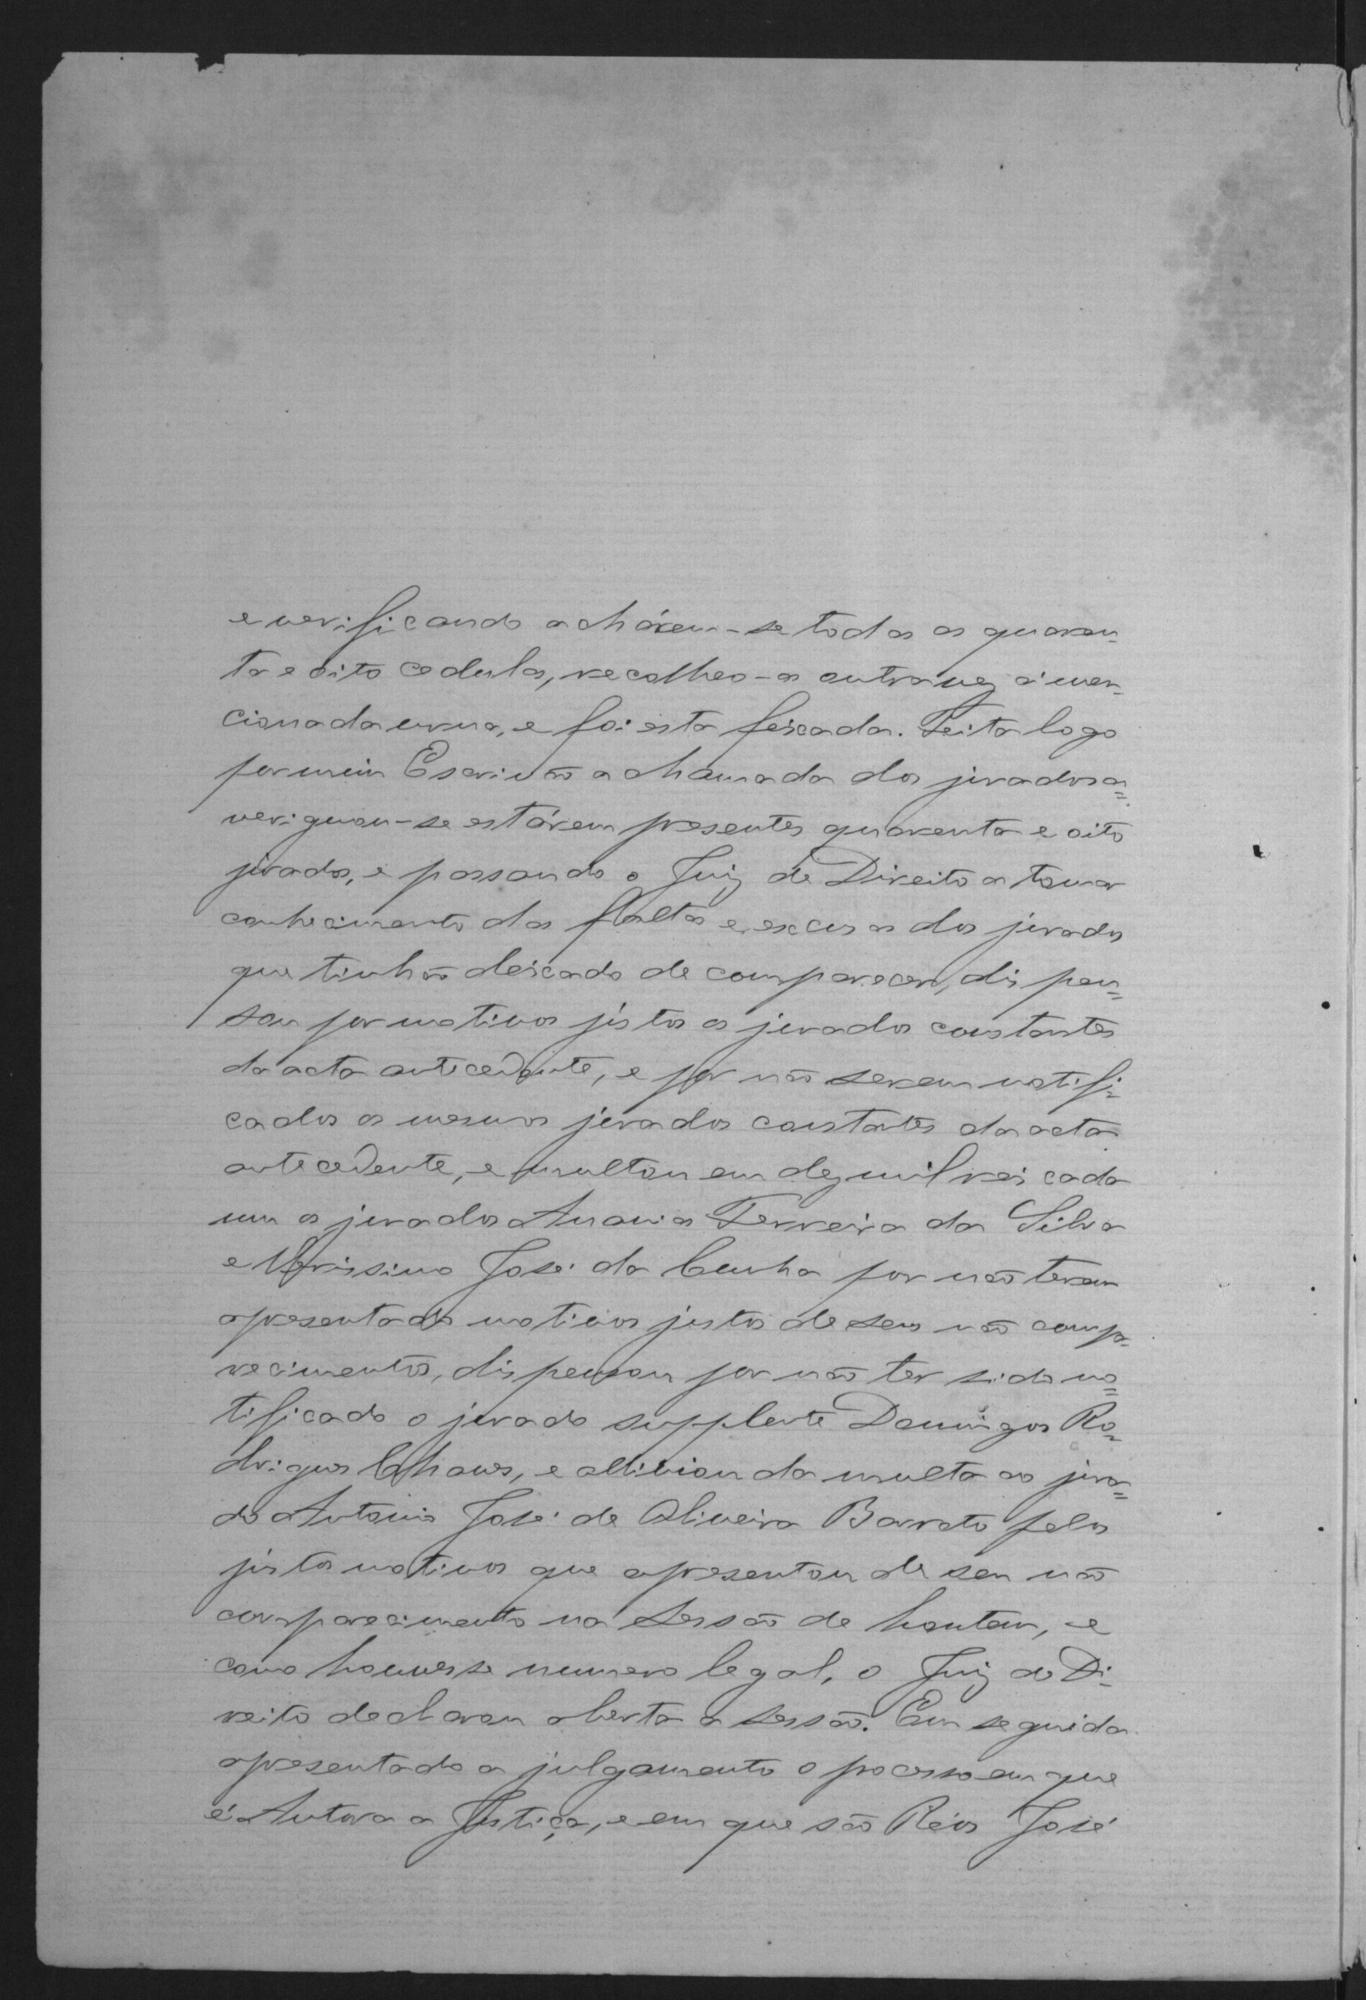 e verificando achárem-se todas as quaren-
ta e oito cedulas, recolheo-as outra vez á men-
cionada urna, e foi esta feixada. Feita logo
por mim Escrivão a chamada dos jurados a=
veriguou-se estárem presentes quarenta e oito
jurados, e passando o Juiz de Direito a tomar
conhecimento das faltas e excusas dos jurados
que tinhão deixado de comparecer, dispen=
sou por motivos justos os jurados constantes
da acta antecedente, e por não serem notifi-
cados os mesmos jurados constantes da acta
antecedente, e multou em dez mil reis cada
um os jurados Ananias Ferreira da Silva
e Verissimo José da Cunha por não terem
apresentado motivos justos de seus não compa-
recimentos, dispensou por não ter sido no=
tificado o jurado supplente Domingos Ro=
drigues Chaves, e allivion da multa ao jura=
do Antonio José de Oliveira Barreto pelos
justos motivos que apresentou de seu não
comparecimento na sessão de hontem, e
como houvesse numero legal, o Juiz de Di-
reito declarou aberta a sessão. Em seguida
apresentado a julgamento o processo em que
é Autora a Justiça, e em que são Réos José